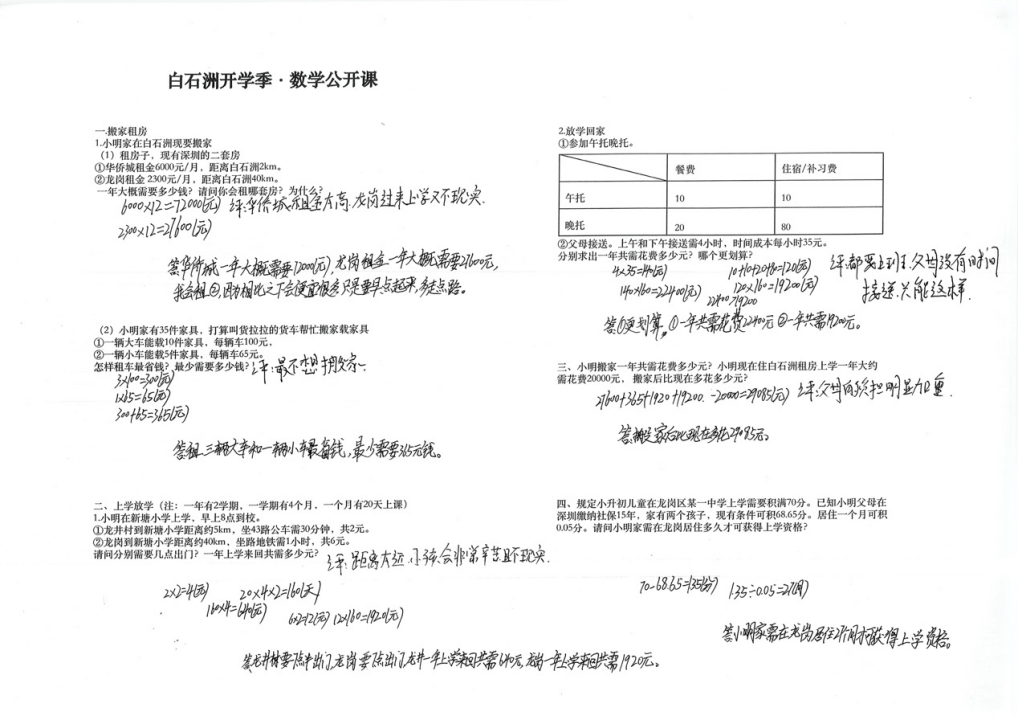 白石洲开学季·数学公开课
一.搬家租房
1.小明家在白石洲现要搬家
（1）租房子，现有深圳的二套房
①华侨城租金6000元/月，距离白石洲2km。
②龙岗租金 2300元/月，距离白石洲40km。
一年大概需要多少钱？请问你会租哪套房？为什么？
6000×12=72000(元) 评:华侨城租金太高,龙岗过来上学又不现实.
2300×12=27600(元)
答华侨城一年大概需要72000(元),龙岗租金一年大概需要27600元,
我会租②,因为相比之下会便宜很多只是要早点起来,多走点路。
（2）小明家有35件家具，打算叫货拉拉的货车帮忙搬家载家具
①一辆大车能载10件家具，每辆车100元，
②一辆小车能载5件家具，每辆车65元。
怎样租车最省钱？最少需要多少钱？评:最不想搬家.
3×100=300(元)
1×65=65(元)
300+65=365(元)
答:租三辆大车和一辆小车最省钱,最少需要365元钱。
二、上学放学（注：一年有2学期，一学期有4个月，一个月有20天上课）
1.小明在新塘小学上学，早上8点到校。
①龙井村到新塘小学距离约5km，坐43路公车需30分钟，共2元。
②龙岗到新塘小学距离约40km，坐路地铁需1小时，共6元。
请问分别需要几点出门？一年上学来回共需多少元？ 评:距离太远,小孩会非常辛苦且不现实.
2×2=4(元) 20×4×2=160(天)
160×4=640(元) 6×2=12(元) 12×160=1920(元)
答龙井村要7点半出门,龙岗要7点出门,龙井一年上学来回共需640元,龙岗一年上学来回共需1920元。
2.放学回家
①参加午托晚托。
餐费 住宿/补习费
午托 10 10
晚托 20 80
②父母接送。上午和下午接送需4小时，时间成本每小时35元。
分别求出一年共需花费多少元？哪个更划算？
4×35=140(元) 10+10+20+80=120(元) 评:都要上班,父母没有时间
140×160=22400(元) 120×160=19200(元) 接送,只能这样.
22400>19200
答①更划算,①一年共需花费22400元 ②一年共需19200元。
三、小明搬家一年共需花费多少元？小明现在住白石洲租房上学一年大约
需花费20000元， 搬家后比现在多花多少元？
27600+365+1920+19200.-20000=29085(元) 评:父母的负担明显加重.
答搬家后比现在多花29085元。
四、规定小升初儿童在龙岗区某一中学上学需要积满70分。已知小明父母在
深圳缴纳社保15年，家有两个孩子，现有条件可积68.65分。居住一个月可积
0.05分。请问小明家需在龙岗居住多久才可获得上学资格？
70-68.65=1.35(分) 1.35÷0.05=27(月)
答小明家需在龙岗居住27个月才可获得上学资格。